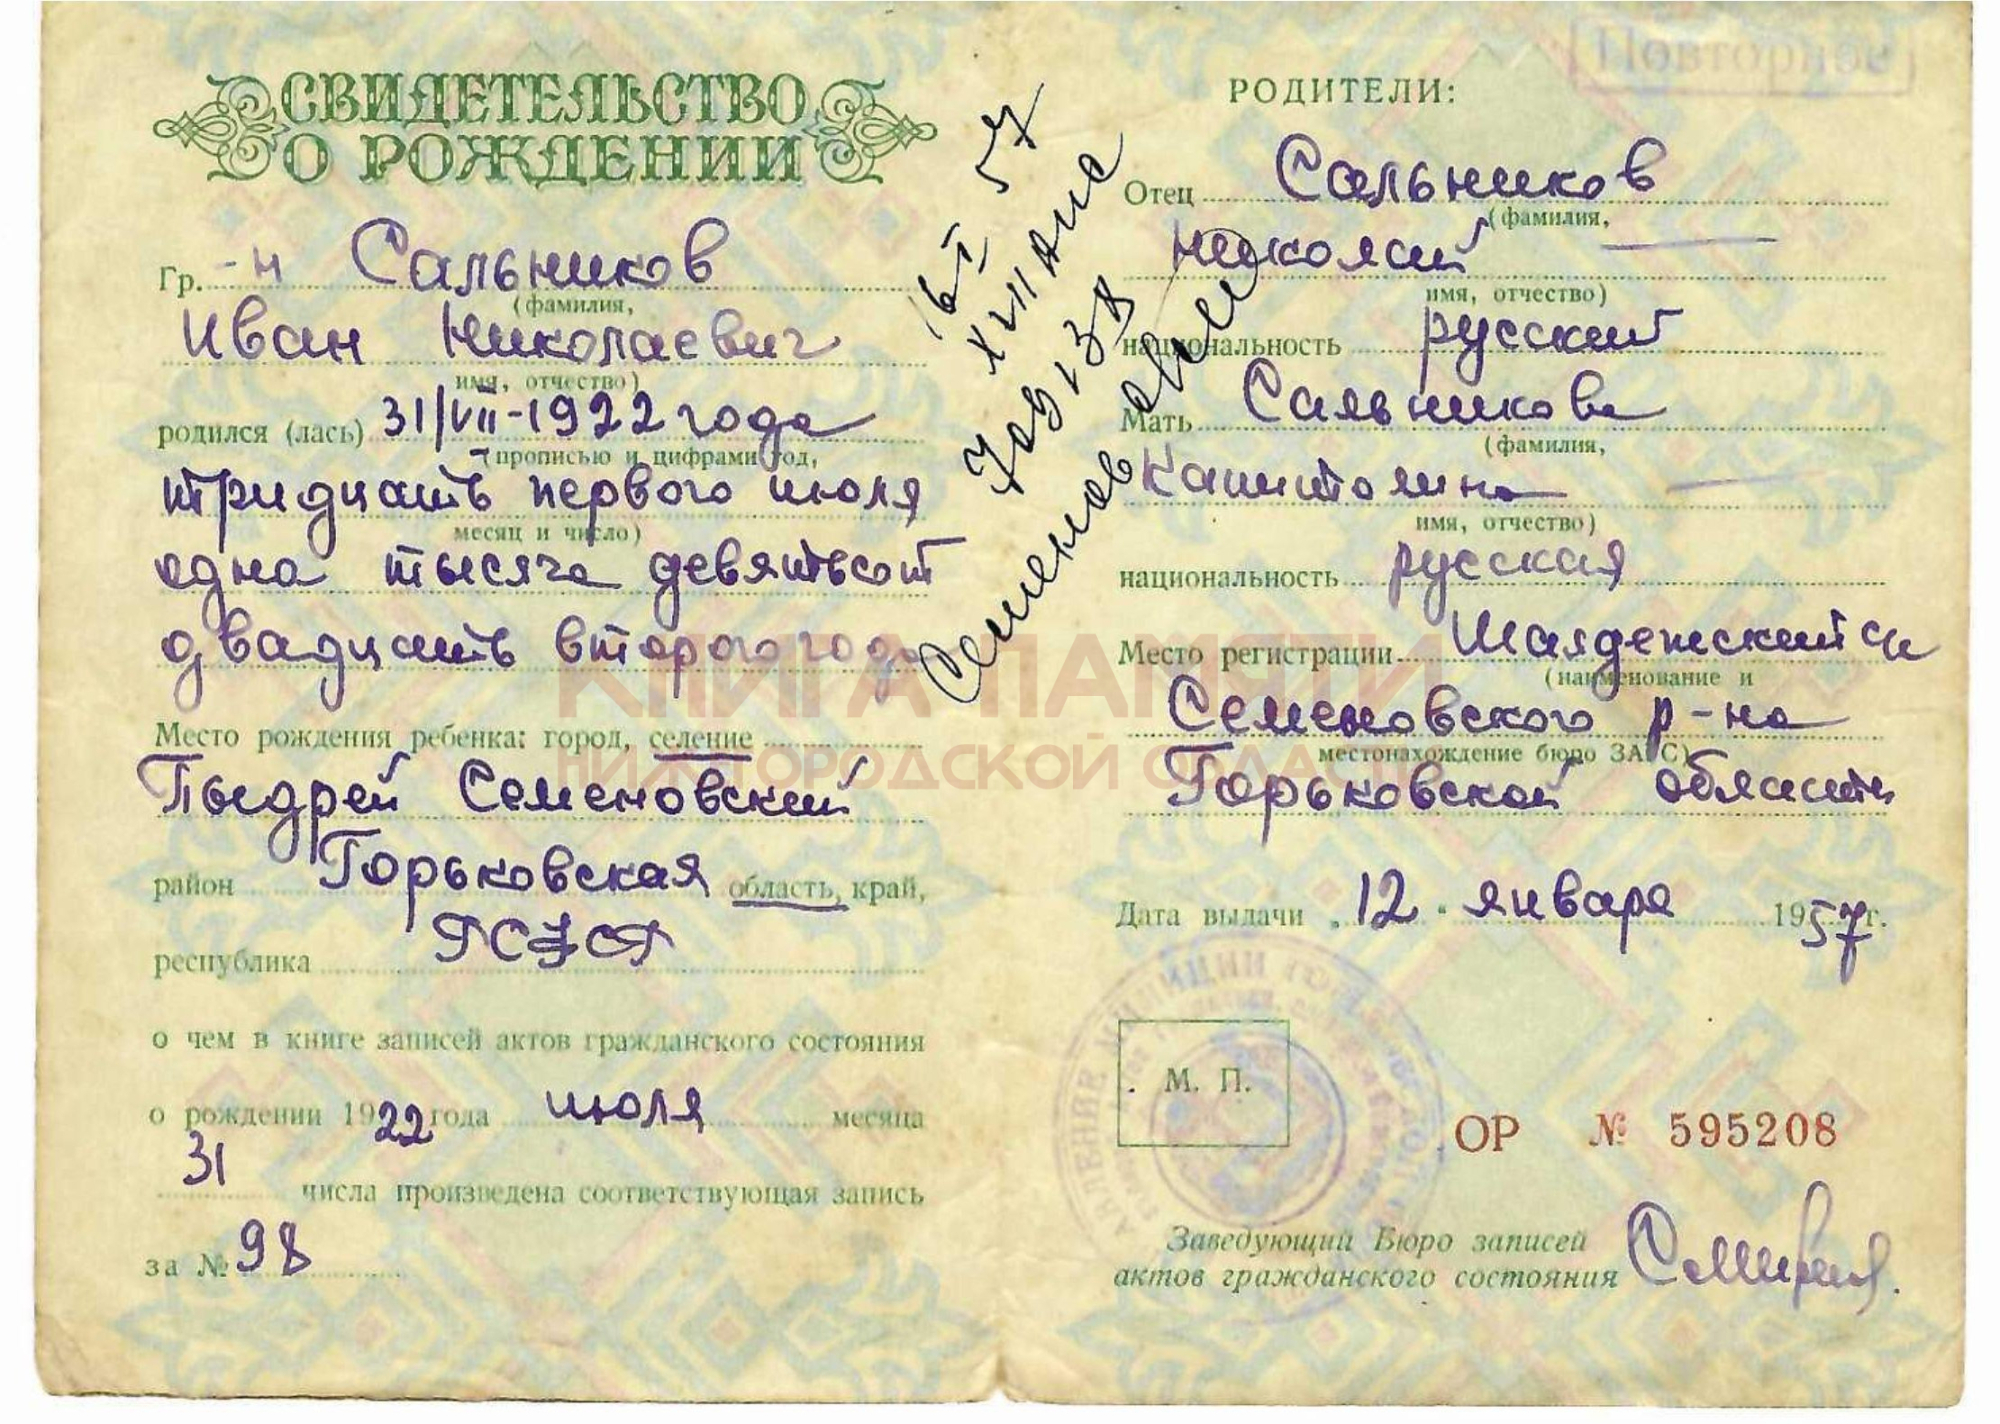 СВИДЕТЕЛЬСТВО
О РОЖДЕНИИ
Гр. -н Сальников
(фамилия,
Иван Николаевич
имя, отчество)
родился (лась) 31/VII-1922 года
(прописью и цифрами год,
тридцать первого июля
месяц и число)
одна тысяча девятьсот
двадцать второго года
Место рождения ребенка: город, селение
Пыдрей Семеновский
район Горьковская область, край,
республика РСФСР
о чем в книге записей актов гражданского состояния
о рождении 1922 года июля месяца
31 числа произведена соответствующая запись
за № 98
16 I 57
709138
Семенов
Повторное
РОДИТЕЛИ:
Отец Сальников
(фамилия,
Николай
имя, отчество)
национальность русский
Мать Сальникова
(фамилия,
Капитолина
имя, отчество)
национальность русская
Место регистрации Шалдежский с/с
(наименование и
Семеновского р-на
местонахождение бюро ЗАГС)
Горьковской области
Дата выдачи „12" января 1957 г.
М. П.
ОР № 595208
Заведующий Бюро записей
актов гражданского состояния
КНИГА ПАМЯТИ
НИЖЕГОРОДСКОЙ ОБЛАСТИ